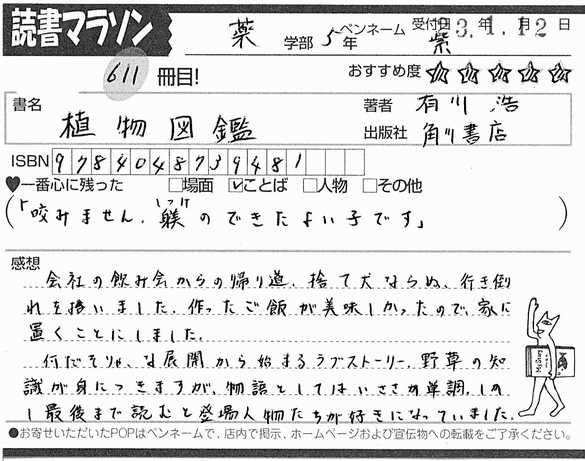 読書マラソン
薬 学部 5年
ペンネーム 紫
受付日 3年 1月12日
611 冊目!
おすすめ度 ☆☆☆☆☆
書名 植物図鑑
著者 有川 浩
出版社 角川書店
ISBN 9784048739481
♥一番心に残った □場面 ☑ことば □人物 □その他
(「咬みません。躾のできたよい子です」)
しつけ
感想
会社の飲み会からの帰り道、捨て犬ならぬ、行き倒
れを拾いました。作ったご飯が美味しかったので、家に
置くことにしました。
何だそりゃ、な展開から始まるラブストーリー。野草の知
識が身につきますが、物語としてはいささか単調。しか
し最後まで読むと登場人物たちが好きになっていました。
●お寄せいただいたPOPはペンネームで、店内で掲示、ホームページおよび宣伝物への転載をご了承ください。